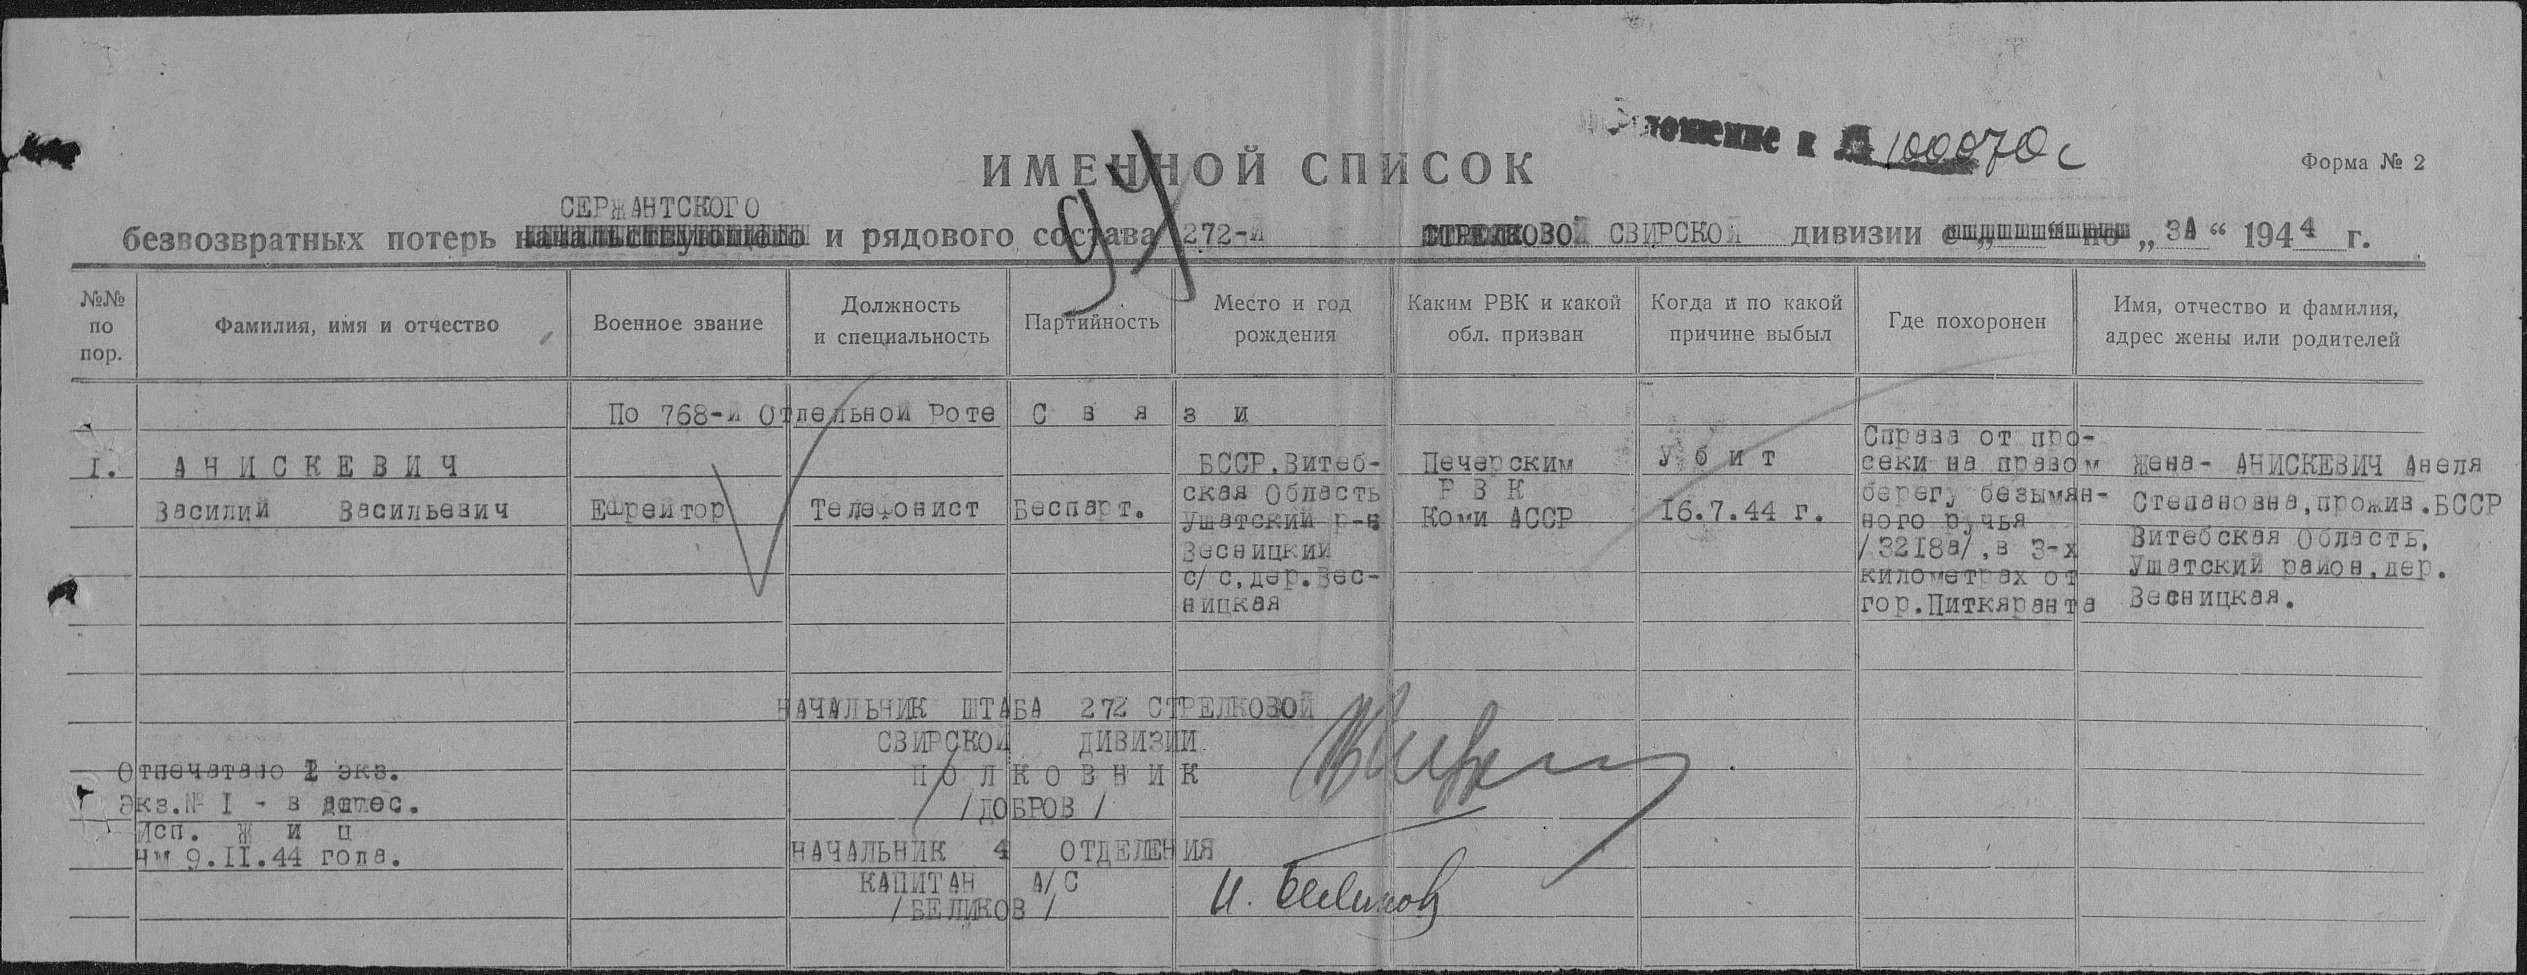 ложение к № 100070с
ИМЕННОЙ СПИСОК
Форма № 2
94
СЕРЖАНТСКОГО
безвозвратных потерь начальствующего и рядового состава 272-й СТРЕЛКОВОЙ СВИРСКОЙ дивизии с „ “ по „ ЗА “ 1944 г.
№№ по пор.
Фамилия, имя и отчество
Военное звание
Должность и специальность
Партийность
Место и год рождения
Каким РВК и какой обл. призван
Когда и по какой причине выбыл
Где похоронен
Имя, отчество и фамилия, адрес жены или родителей
По 768-й Отдельной Роте С в я з и
I. А Н И С К Е В И Ч
Василий Васильевич
Ефрейтор
Телефонист
Беспарт.
БССР,Витеб-
ская Область
Ушатский р-н
Весницкий
с/с,дер.Вес-
ницкая
Печерским
Р В К
Коми АССР
У б и т
16.7.44 г.
Справа от про-
секи на правом
берегу безымян-
ного ручья
/3218в/,в 3-х
километрах от
гор.Питкяранта
Жена- АНИСКЕВИЧ Анеля
Степановна,прожив.БССР
Витебская Область,
Ушатский район,дер.
Весницкая.
НАЧАЛЬНИК ШТАБА 272 СТРЕЛКОВОЙ
СВИРСКОЙ ДИВИЗИИ
П О Л К О В Н И К
/ДОБРОВ/
НАЧАЛЬНИК 4 ОТДЕЛЕНИЯ
КАПИТАН А/С
/БЕЛИКОВ/
И. Беликов
Отпечатано I экз.
Экз.№ I - в адрес.
Исп. Ж и ц
нм 9.II.44 года.